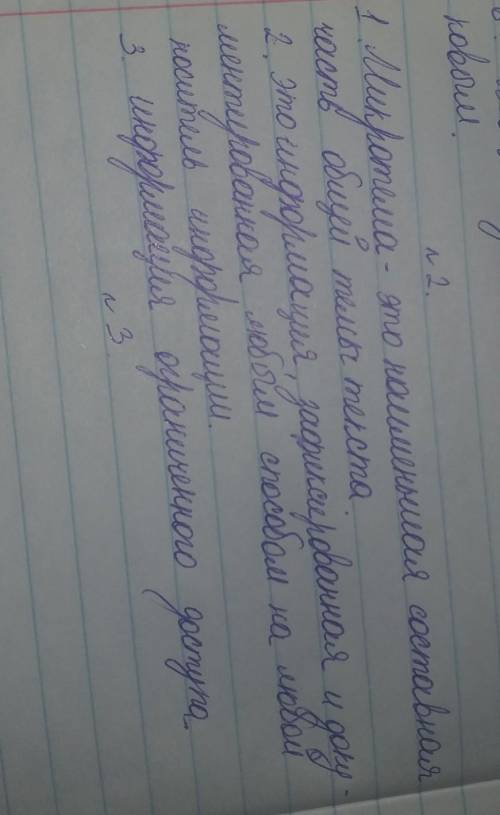 ковом.
№2.
1. Микротема - это наименьшая составная
часть общей темы текста
2. это информация, зафиксированная и доку-
ментированная любым способом на любой
носитель информации.
3. информация ограниченного доступа.
№3.